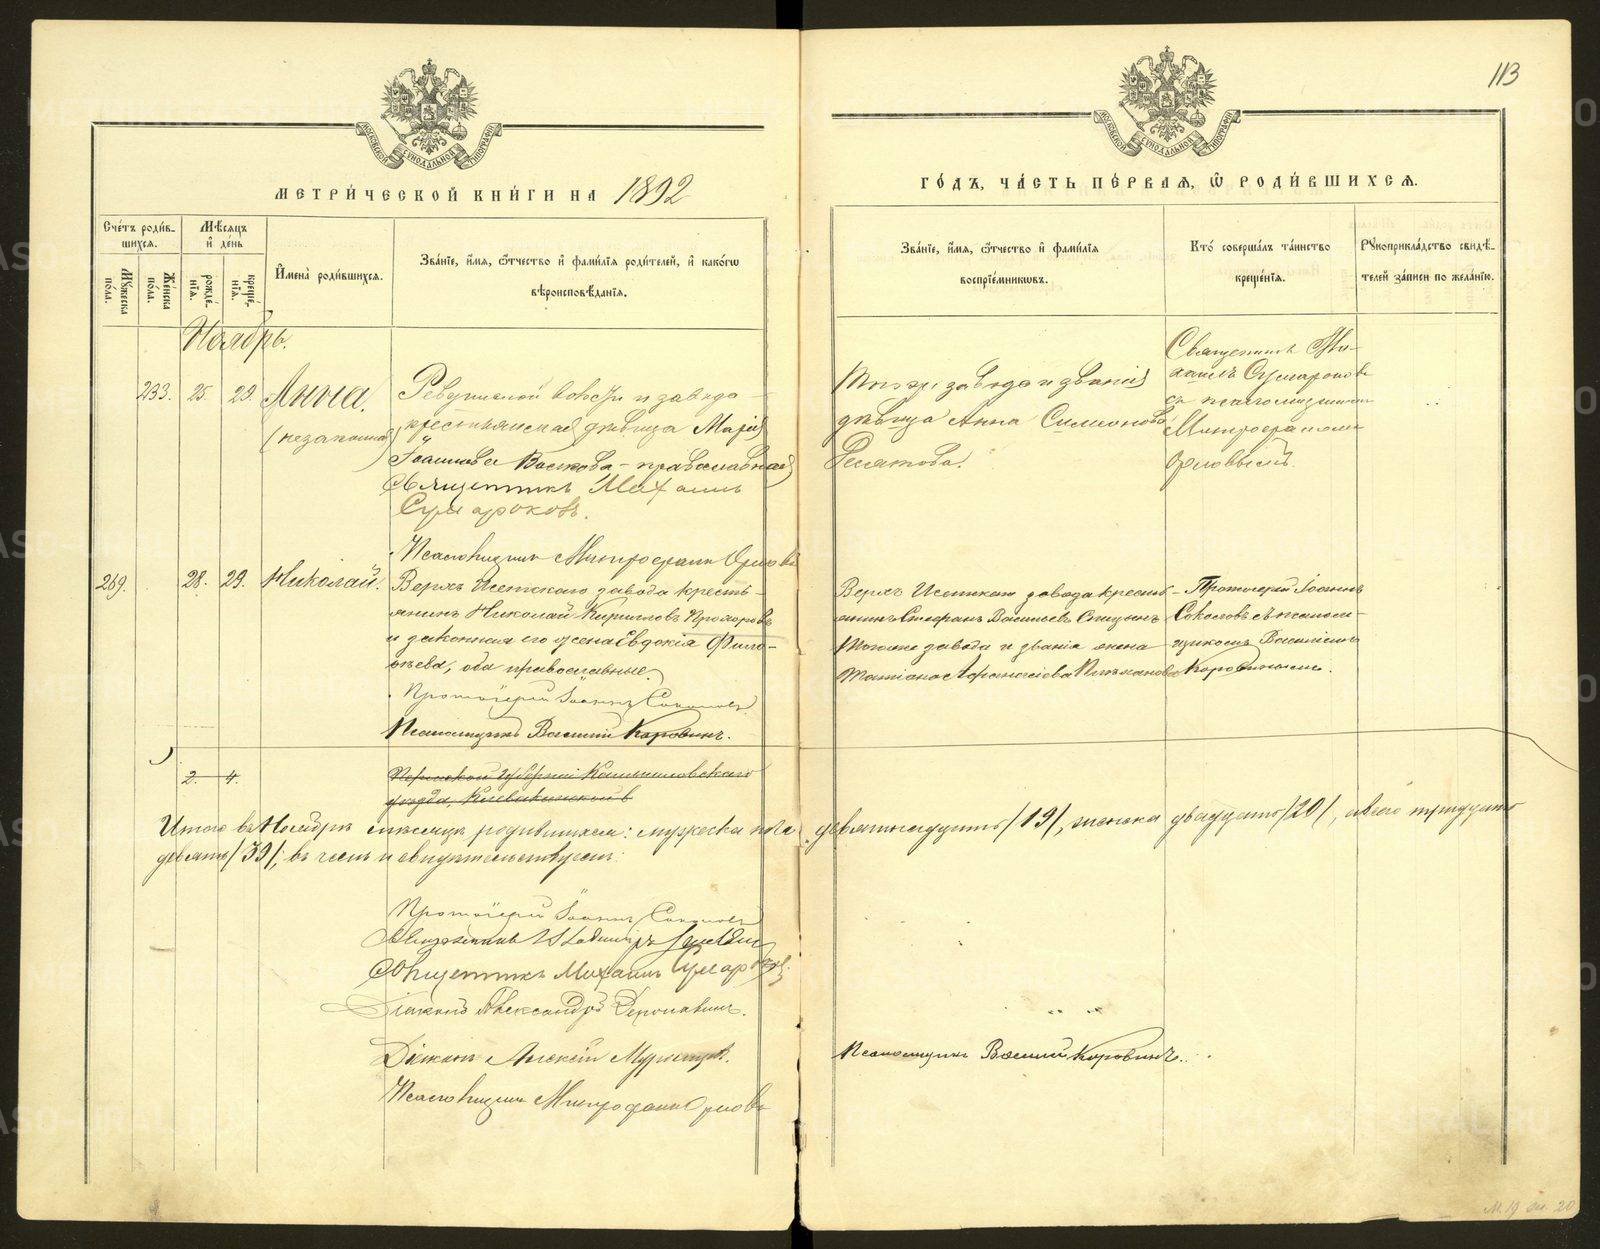 113
МОСКОВСКОЙ СѴНОДАЛЬНОЙ ТИПОГРАФІИ
МОСКОВСКОЙ СѴНОДАЛЬНОЙ ТИПОГРАФІИ
МЕТРИ́ЧЕСКОЙ КНИ́ГИ НА 1892
ГО́ДЪ, ЧА́СТЬ ПЕ́РВАЯ, Ѽ РОДИ́ВШИХСЯ.
Сче́тъ роди́в-
шихся.
Му́жеска по́ла.
Же́нска по́ла.
Мѣ́сяцъ
и де́нь
рожде́-
нїя.
креще́-
нїя.
И҆мена̀ роди́вшихся.
Зва́нїе, и҆́мя, ѻ҆́тчество и҆ фами́лїя роди́телей, и҆ како́гѡ
вѣроисповѣ́данїя.
Зва́нїе, и҆́мя, ѻ҆́тчество и҆ фами́лїя
воспрїе́мникѡвъ.
Кто̀ соверша́лъ та́инство
креще́нїя.
Рꙋкоприкла́дство свидѣ́-
телей за́писи по жела́нїю.
Ноябрь.
233. 25. 29. Анна.
(незаконная)
Ревдинской волости и завода
крестьянская дѣвица Марія
Іоаннова Волкова - православная
Священникъ Михаилъ
Сумароковъ.
Псаломщикъ Митрофанъ Орловъ
Того же завода и званія
дѣвица Анна Симеонова
Священникъ Ми-
хаилъ Сумароковъ
съ псаломщикомъ
Митрофаномъ
Орловымъ.
269. 28. 29. Николай.
Верхъ Исетскаго завода кресть-
янинъ Николай Кирилловъ Прохоровъ
и законная его жена Евдокія Фило-
оба православные.
Протоіерей Іоаннъ Соколовъ
Псаломщикъ Василій Коровинъ.
Верхъ Исетскаго завода кресть-
янинъ Стефанъ Васильевъ Спицынъ
Тогоже завода и званія жена
Татіана Афанасіева
Протоіерей Іоаннъ
Соколовъ съ псалом-
щикомъ Василіемъ
Коровинымъ.
2. 4.
Пермской губерніи Камышловскаго
уѣзда,
Итого въ Ноябрѣ мѣсяцѣ родившихся: мужеска пола девятнадцать /19/, женска двадцать /20/, всего тридцать
девять /39/; въ чемъ и свидѣтельствуемъ:
Протоіерей Іоаннъ Соколовъ
Священникъ Владиміръ
Священникъ Михаилъ Сумароковъ.
Діаконъ Александръ
Діаконъ Алексій
Псаломщикъ Митрофанъ Орловъ
Псаломщикъ Василій Коровинъ.